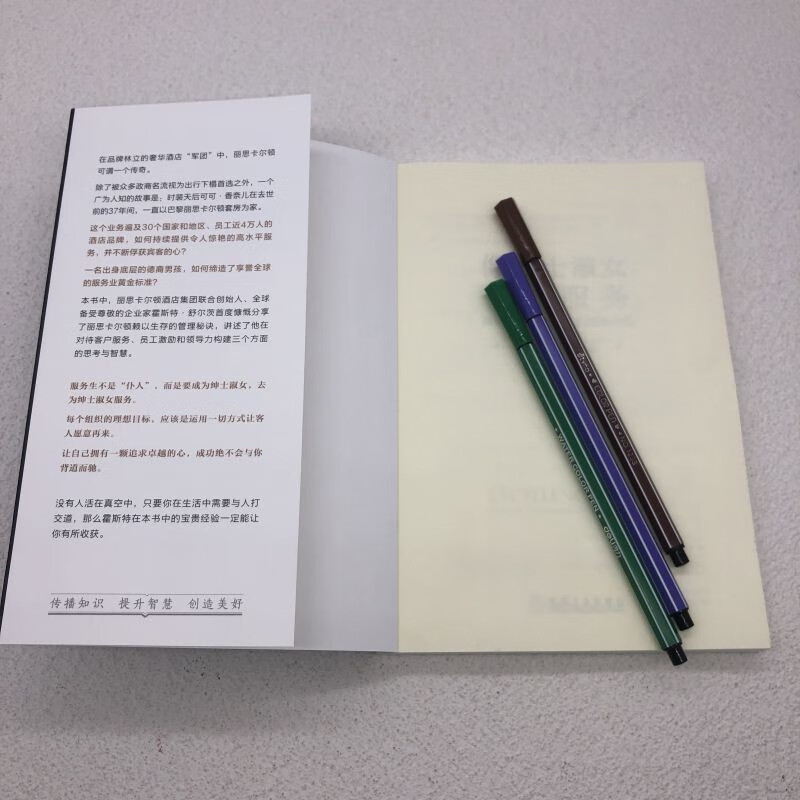 在品牌林立的奢华酒店“军团”中，丽思卡尔顿
可谓一个传奇。
除了被众多政商名流视为出行下榻首选之外，一个
广为人知的故事是：时装天后可可·香奈儿在去世
前的37年间，一直以巴黎丽思卡尔顿套房为家。
这个业务遍及30个国家和地区、员工近4万人的
酒店品牌，如何持续提供令人惊艳的高水平服
务，并不断俘获宾客的心？
一名出身底层的德裔男孩，如何缔造了享誉全球
的服务业黄金标准？
本书中，丽思卡尔顿酒店集团联合创始人、全球
备受尊敬的企业家霍斯特·舒尔茨首度慷慨分享
了丽思卡尔顿赖以生存的管理秘诀，讲述了他在
对待客户服务、员工激励和领导力构建三个方面
的思考与智慧。
服务生不是“仆人”，而是要成为绅士淑女，去
为绅士淑女服务。
每个组织的理想目标，应该是运用一切方式让客
人愿意再来。
让自己拥有一颗追求卓越的心，成功绝不会与你
背道而驰。
没有人活在真空中，只要你在生活中需要与人打
交道，那么霍斯特在本书中的宝贵经验一定能让
你有所收获。
传播知识 提升智慧 创造美好
WATER COLOR PEN